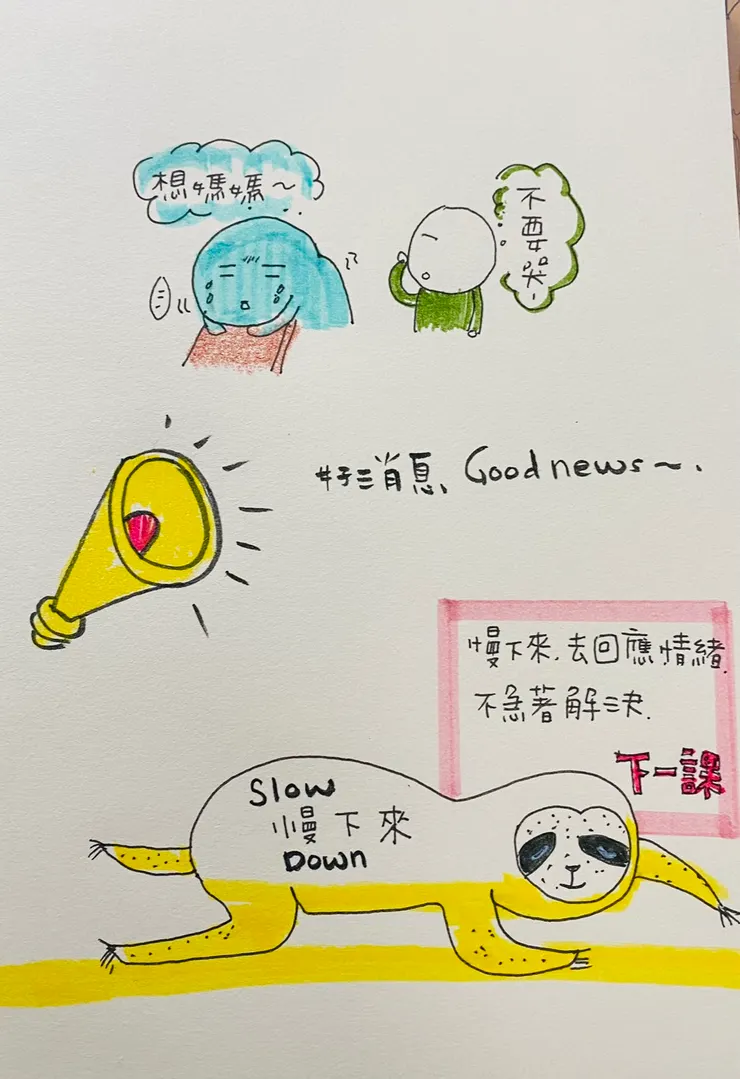 想媽媽~
不要哭
好消息、Good news~.
慢下來,去回應情緒.
不急著解決.
下一課
Slow
慢下來
Down